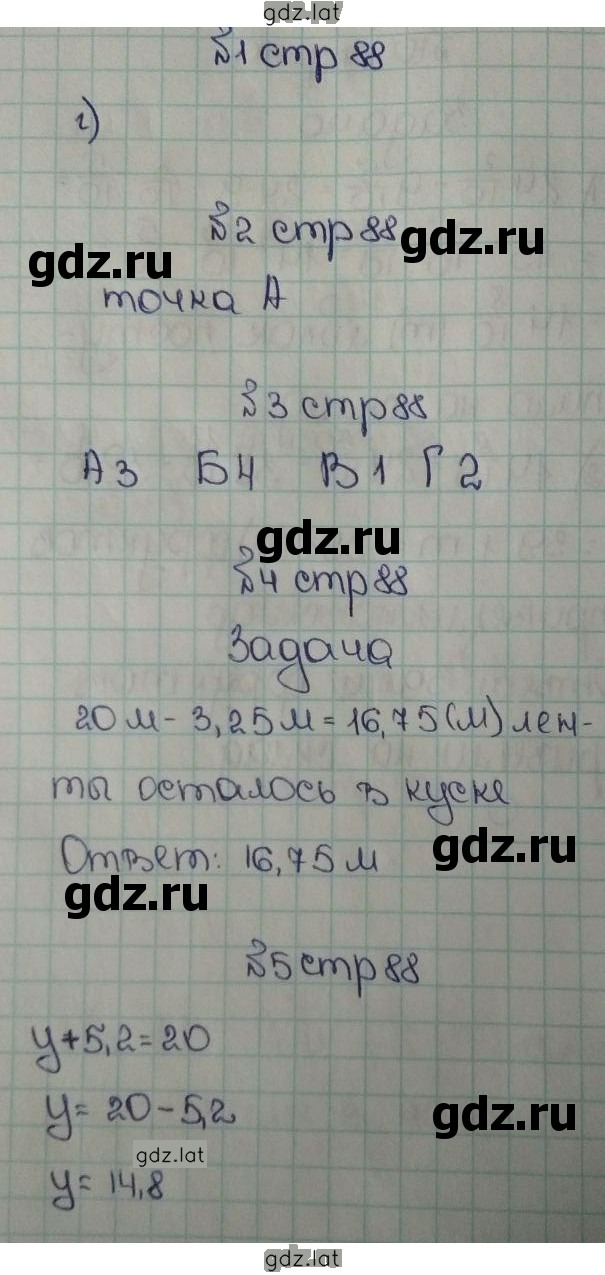 gdz.lat
№1 стр 88
г)
№2 стр 88
gdz.ru
gdz.ru
точка А
№3 стр 88
А3 Б4 В1 Г2
gdz.ru
№4 стр 88
Задача
20м - 3,25м = 16,75(м) лен-
ты осталось в куске
gdz.ru
Ответ: 16,75м
gdz.ru
№5 стр 88
y+5,2=20
y= 20-5,2
gdz.ru
gdz.lat
y= 14,8
gdz.lat